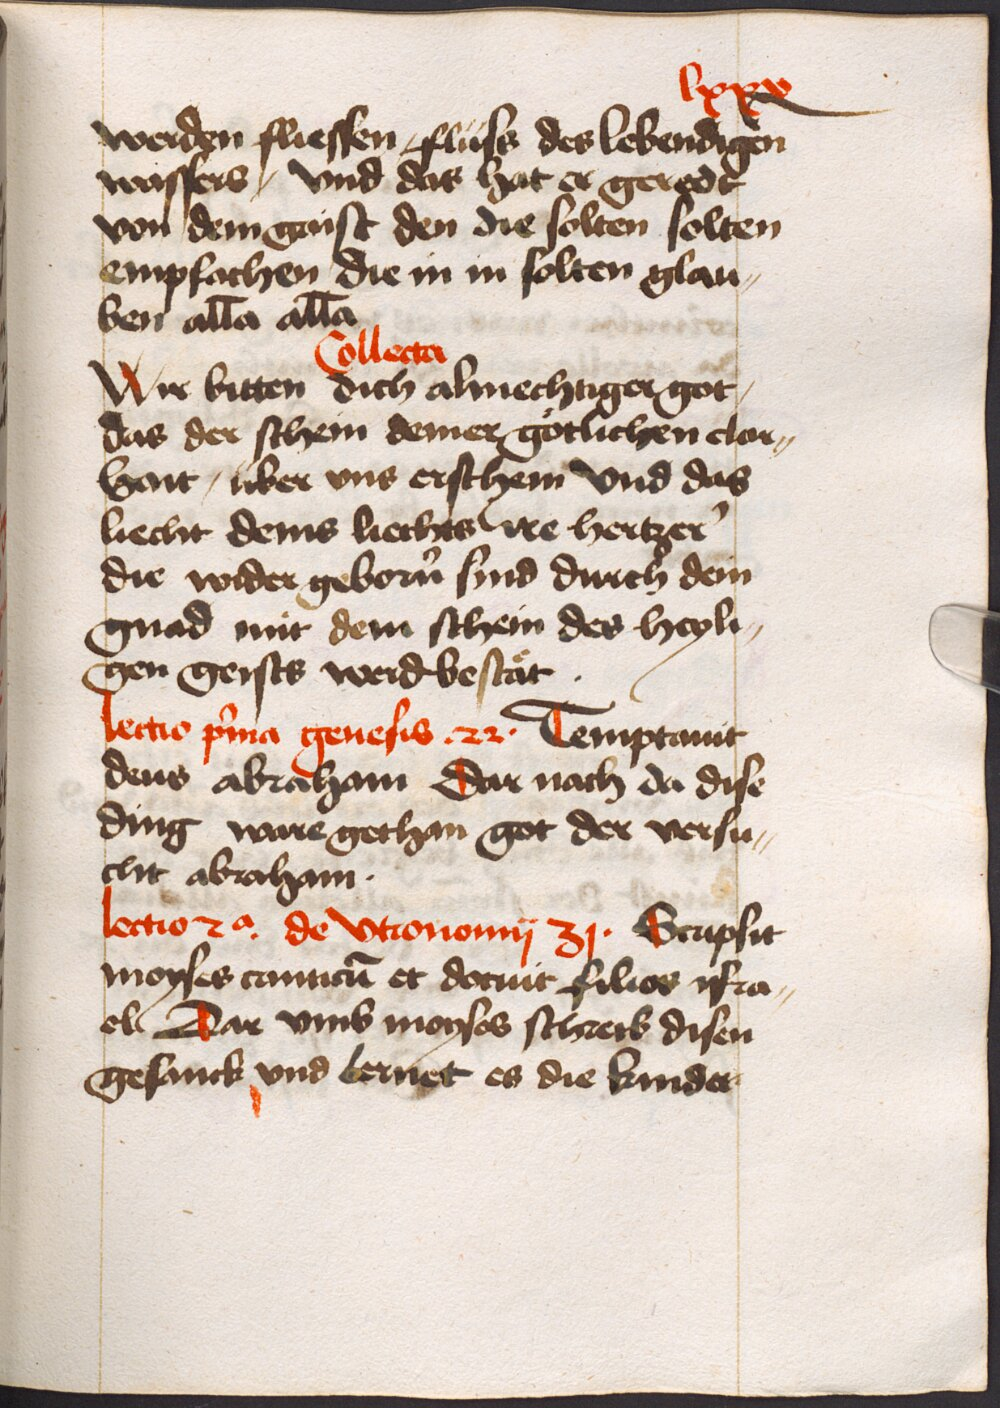 lxxx
werden fliessen / flüss des lebendigen
wassers / Vnd das hat er geredt
von dem gaist den die solten solten
empfachen die in in solten glau„
ben all̅a all̅a
Collecta
Wir bitten dich almechtiger got /
das der schein deiner götlichen clar„
hait / über vns erschein Vnd das
liecht deins liechts die hertzen
die wider geborn̄ sind durch dein
gnad mit dem schein des heyli„
gen geists werd bestät .
lectio p̓ma genesis .22. Temptauit
deus abraham Dar nach da dise
ding ware gethan got der versu„
cht abraham .
lectio 2ᵃ. de Vtronomij 31. Scripsit
moyses canticū et docuit filios isra„
el Dar vmb moyses schreib disen
gesanck vnd lernet es die kinder